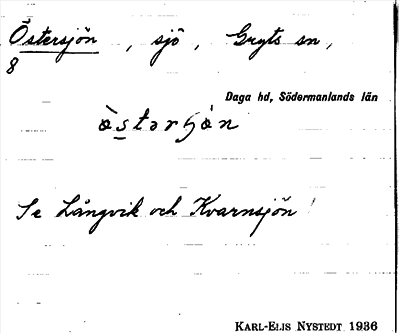 Östersjön, sjö, Gryts sn,
8
Daga hd, Södermanlands län
Se Långvik och Kvarnsjön
KARL-ELIS NYSTEDT 1936